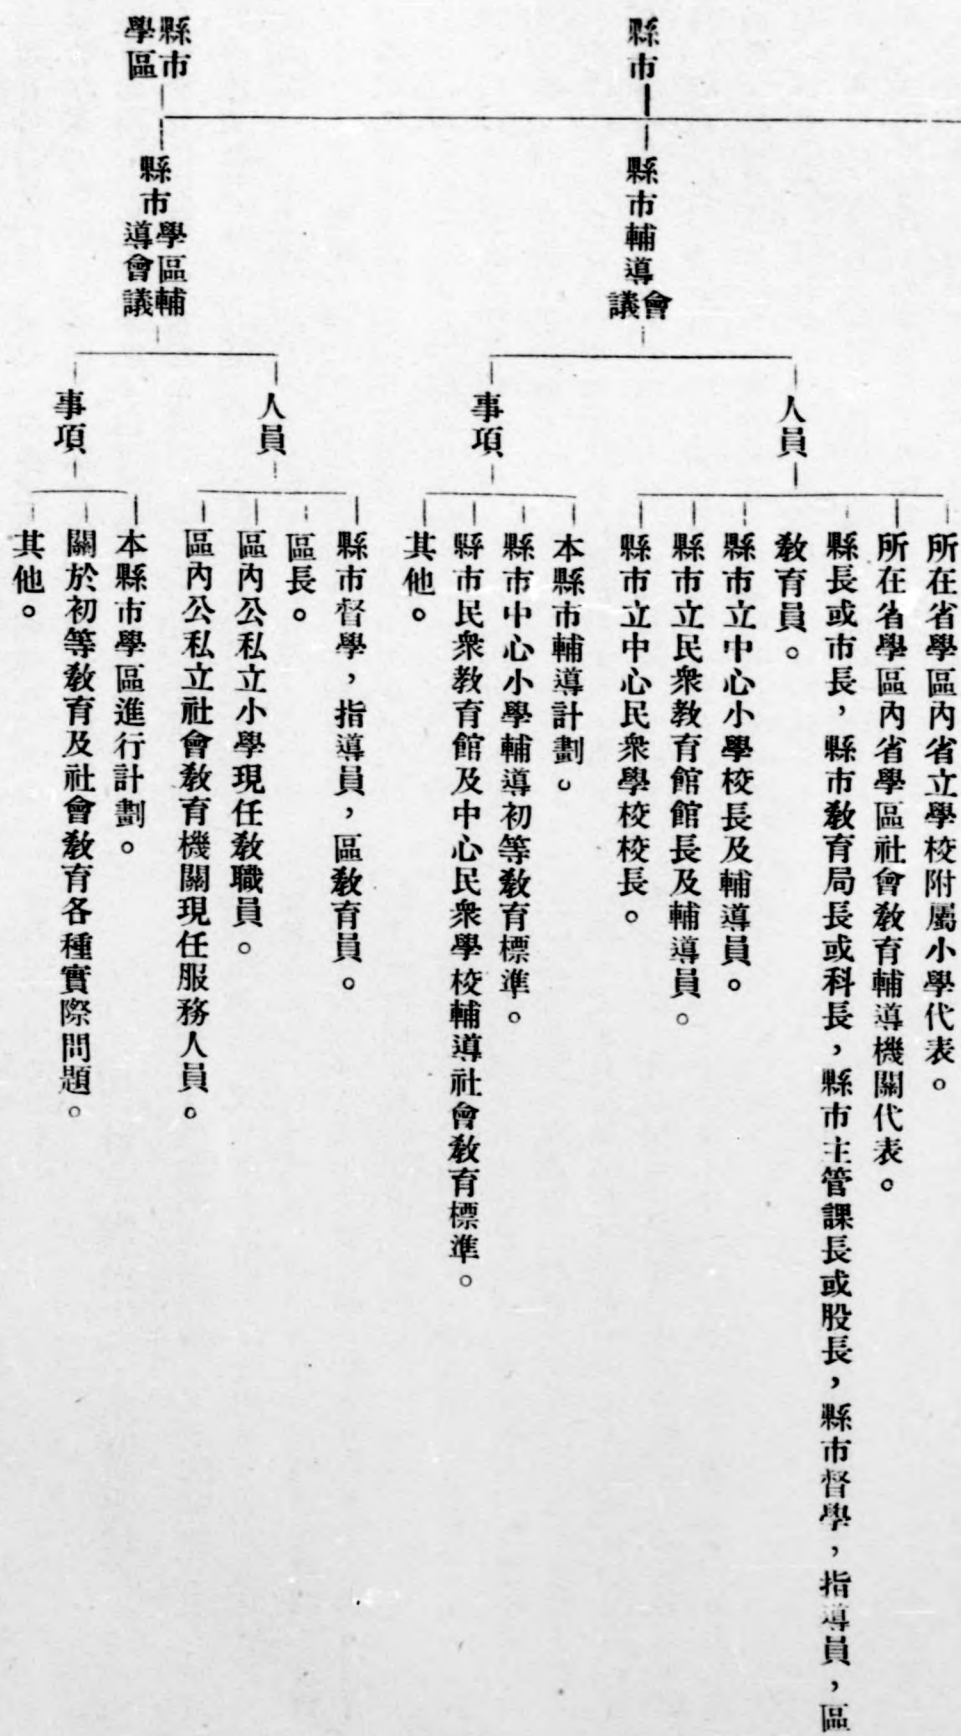 縣市
縣市輔導會
議
人員
所在省學區內省立學校附屬小學代表。
所在省學區內省學區社會教育輔導機關代表。
縣長或市長，縣市教育局長或科長，縣市主管課長或股長，縣市督學，指導員，區
教育員。
縣市立中心小學校長及輔導員。
縣市立民衆教育館館長及輔導員。
縣市立中心民衆學校校長。
事項
本縣市輔導計劃。
縣市中心小學輔導初等教育標準。
縣市民衆教育館及中心民衆學校輔導社會教育標準。
其他。
縣市
學區
縣市學區輔
導會議
人員
縣市督學，指導員，區教育員。
區長。
區內公私立小學現任教職員。
區內公私立社會教育機關現任服務人員。
事項
本縣市學區進行計劃。
關於初等教育及社會教育各種實際問題。
其他。